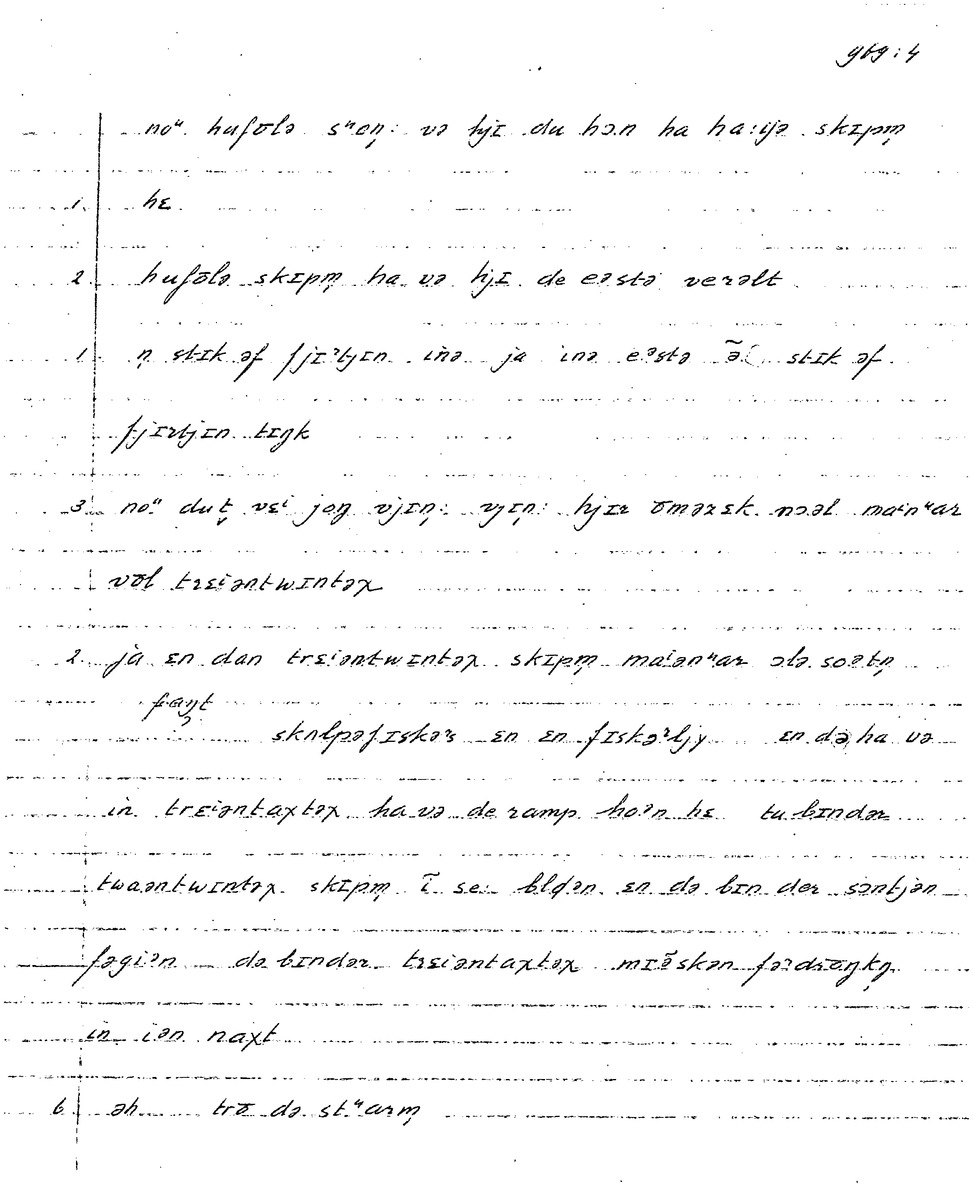 gbg: 4
noᵘ hufōlə sᵘon̩: və hjɪ du hɔn ha ha:ijə skɪpm̩
1. hɛ
2. hufōlə skɪpm̩ ha və hjɪ de eəstə verəlt
1. n̩ stɪk əf fjɪᵊtjɪn inə ja inə eᵊstə stɪk əf
fjɪrtjɪn tɪŋk
3. noᵘ dut̩ vɛⁱ joŋ vjɪn̩: vjɪn̩: hjɪr ōmərɛk nɔəl maⁱnᵘar
vōl trɛiəntwɪntəχ
2. ja ɛn dan trɛⁱəntwɪntəχ skɪpm̩ maⁱənᵘar ɔlə soətn̩
skʌlpəfɪskəᵊs ɛn ɛn fɪskəᵊtjy ɛn də ha və
in trɛⁱəntaχtəχ ha və de ramp hoᵊn hɛ tu bɪndər
twaəntwɪntəχ skɪpm̩ ĩ se: blɑən ɛn də bɪn der sɔntjən
fəgiᵊn də bɪndər trɛiəntaχtəχ mɪə̃skən fəᵊdrōŋkŋ̩
in iən naχt
6 əh trō də stᵘarm̩